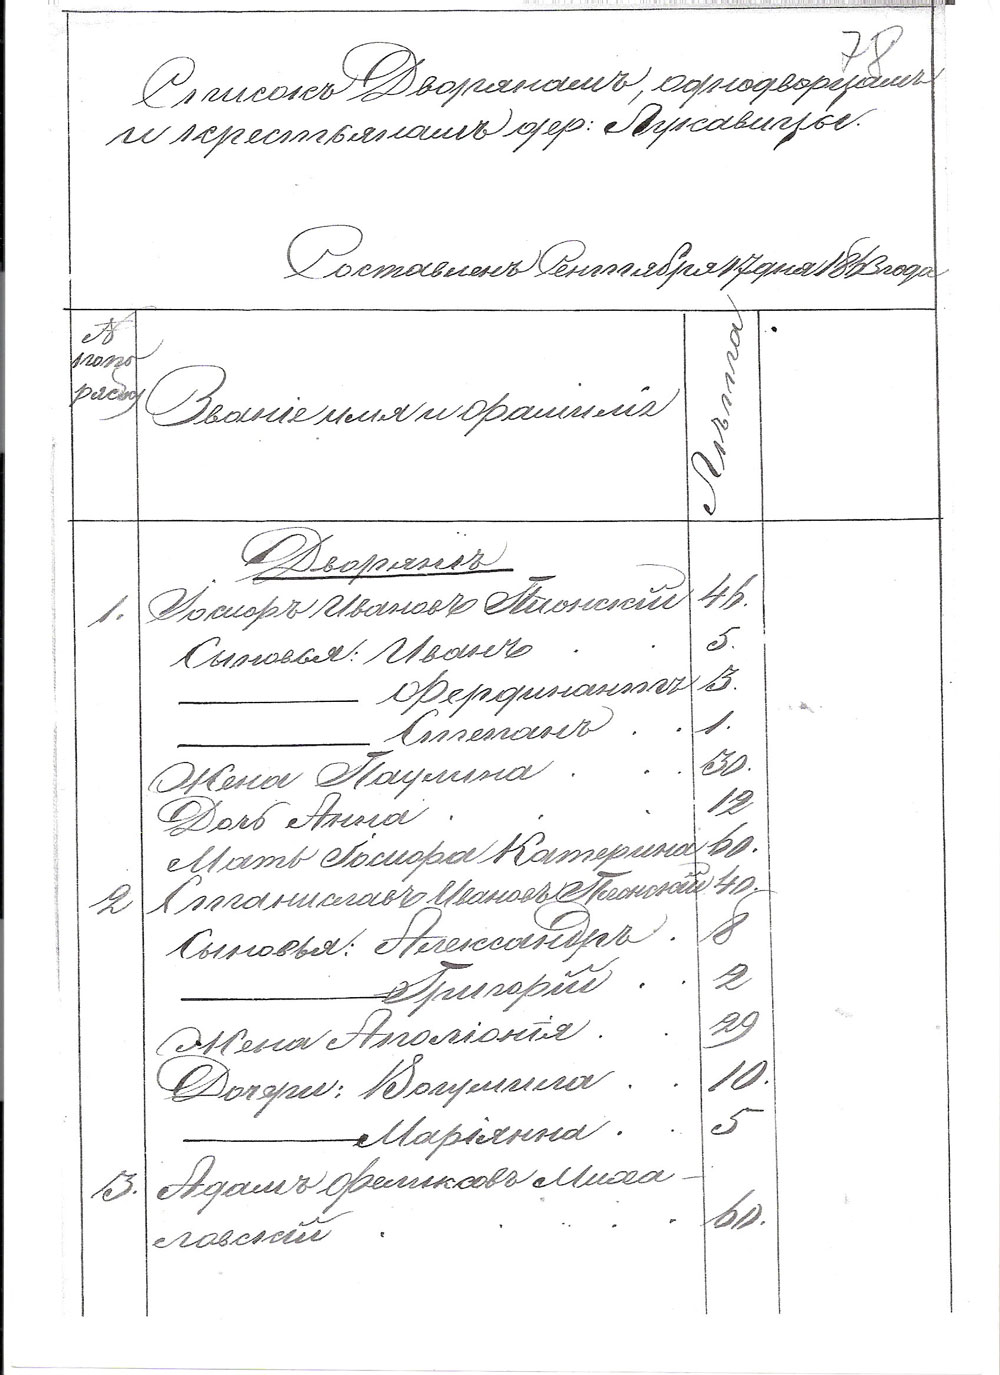 78
Списокъ Дворянамъ, однодворцамъ
и крестьянамъ дер: Лукавицы.
Составленъ Сентября 17 дня 1863 года
№
по по
рядку
Званіе имя и фамилія
Лѣта
Дворянѣ
1. Іосифъ Ивановъ Плонскій 46.
Сыновья: Иванъ . . 5.
Фердинантъ 3.
Степанъ . . 1.
Жена Паулина . . . 30.
Дочь Анна . . . 12
Мать Іосифа Катерина 60.
2 Станиславъ Ивановъ Плонскій 40.
Сыновья: Александръ . 8
Григорій . . 2
Жена Аполіонія . . 29
Дочери: Богумила . . 10.
Маріянна . . 5
3. Адамъ Феликсовъ Миха-
ловскій . . . . . 60.